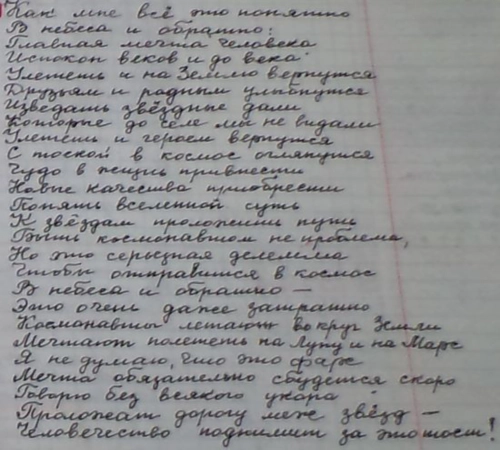 Как мне всё это понятно
В небеса и обратно:
Главная мечта человека
Испокон веков и до века
Улететь и на Землю вернутся
Друзьям и родным улыбнутся
Изведать звёздные дали
Которые до селе мы не видали
Улететь и героем вернутся
С тоской в космос оглянутся
Чудо в жизнь привнести
Новые качества приобрести
Понять вселенной суть
К звёздам проложить путь
Быть космонавтом не проблема,
Но это серьёзная делемма
Чтобы отправится в космос
В небеса и обратно —
Это очень даже затратно
Космонавты летают вокруг Земли
Мечтают полететь на Луну и на Марс
Я не думаю, что это фарс
Мечта обязательно сбудется скоро
Говорю без всякого укора
Проложат дорогу меж звёзд —
Человечество поднимит за это тост!